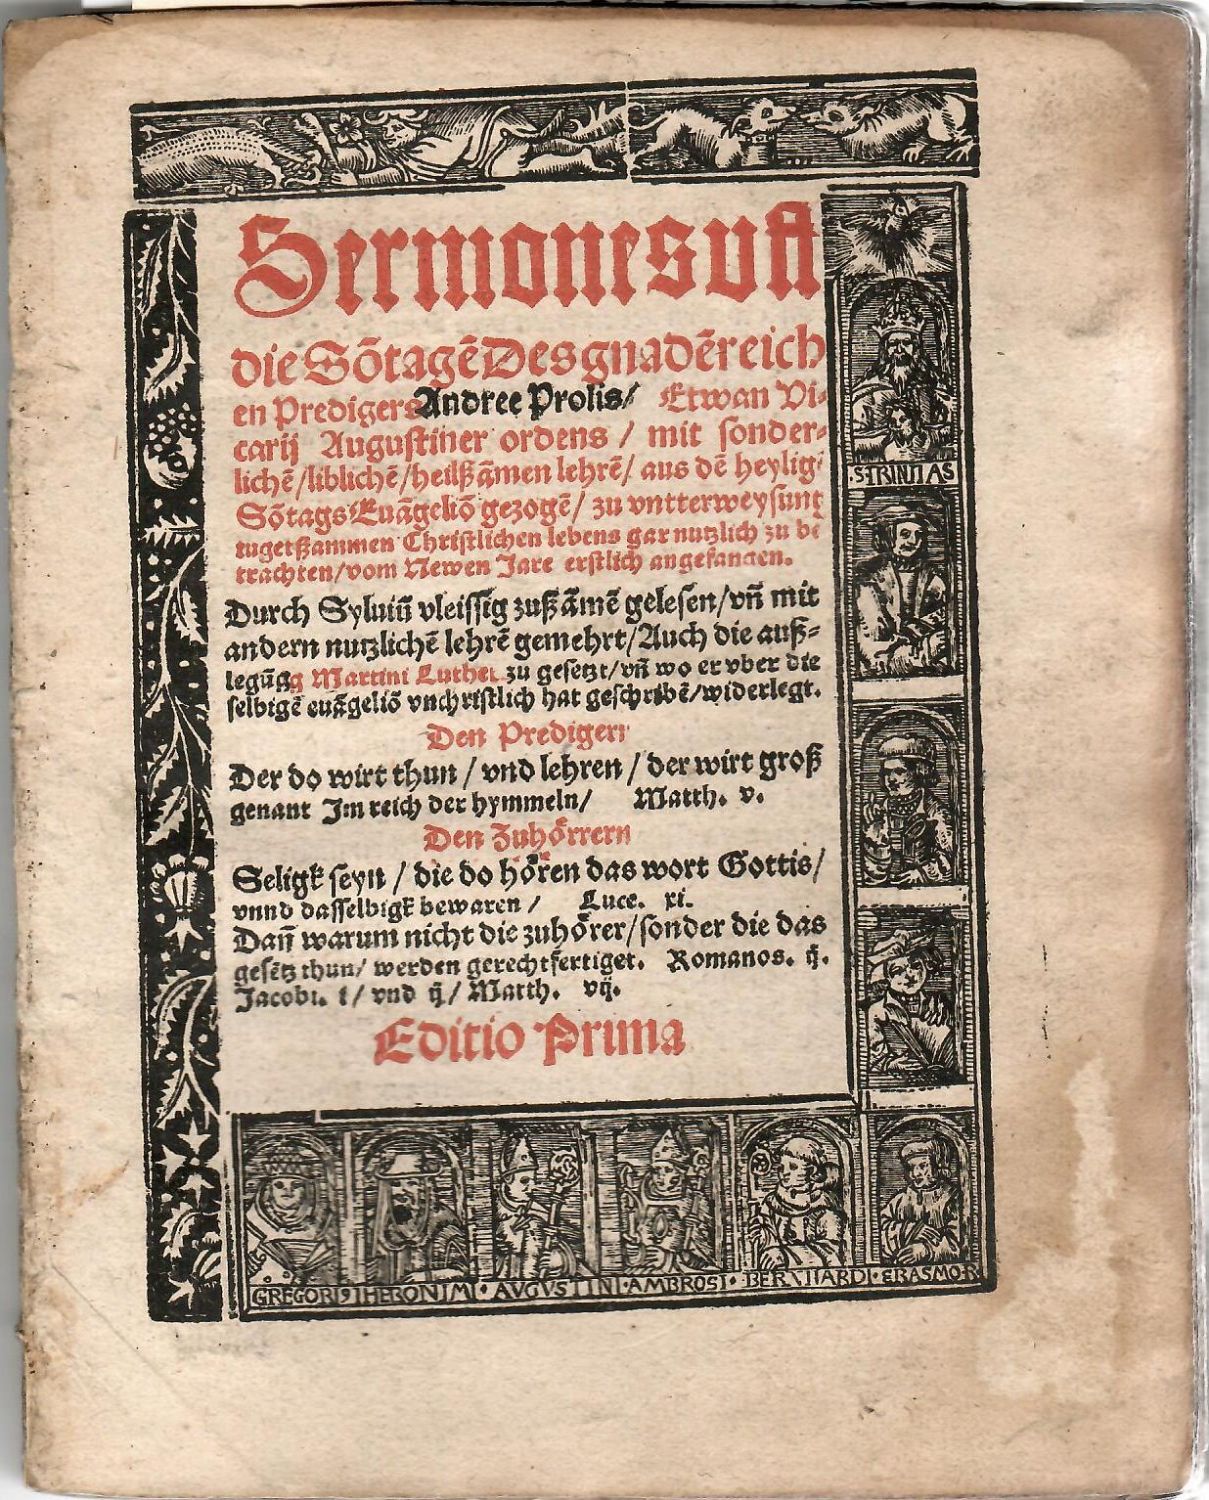 Sermones vff
die Sõtagẽ Des gnadẽreich
en Predigers Andree Prolis/ Etwan Vi-
carij Augustiner ordens / mit sonder-
lichẽ/liblichẽ/heilßãmen lehrẽ/ aus dẽ heylig
Sõtags Euãgeliõ gezogẽ/ zu vntterweysung
tugetßammen Christlichen lebens gar nutzlich zu be
trachten/vom Newen Jare erstlich angefangen.
Durch Syluiũ vleissig zußãmẽ gelesen/vñ mit
andern nutzlichẽ lehrẽ gemehrt/Auch die auß-
legũg Martini Luther zu gesetzt/vñ wo er vber die
selbigẽ euãgeliõ vnchristlich hat geschribẽ/widerlegt.
Den Predigern
Der do wirt thun / vnd lehren / der wirt groß
genant Im reich der hymmeln/ Matth. v.
Den Zuhörrern
Seligk seyn / die do hören das wort Gottis/
vnnd dasselbigk bewaren / Luce. xi.
Dañ warum nicht die zuhörer/sonder die das
gesẽtz thun/ werden gerechtfertiget. Romanos. ij.
Jacobi. i/ vnd ij/ Matth. vij.
Editio Prima
S·TRINITAS
GREGORI9 IHERONIMI · AVGVSTINI · AMBROSI · BERNHARDI · ERASMO·R